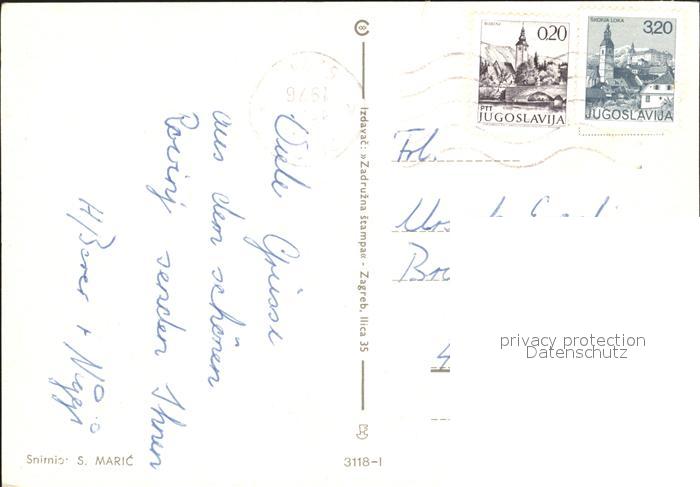 Viele Grüsse
aus dem schönen
Rovinj senden Ihnen
H/Berer +
Izdavač: »Zadružna štampa« - Zagreb, Ilica 35
Snimio: S. MARIĆ
3118-I
BOHINJ
0,20
PTT
JUGOSLAVIJA
ŠKOFJA LOKA
3,20
JUGOSLAVIJA
Frl.
privacy protection
Datenschutz